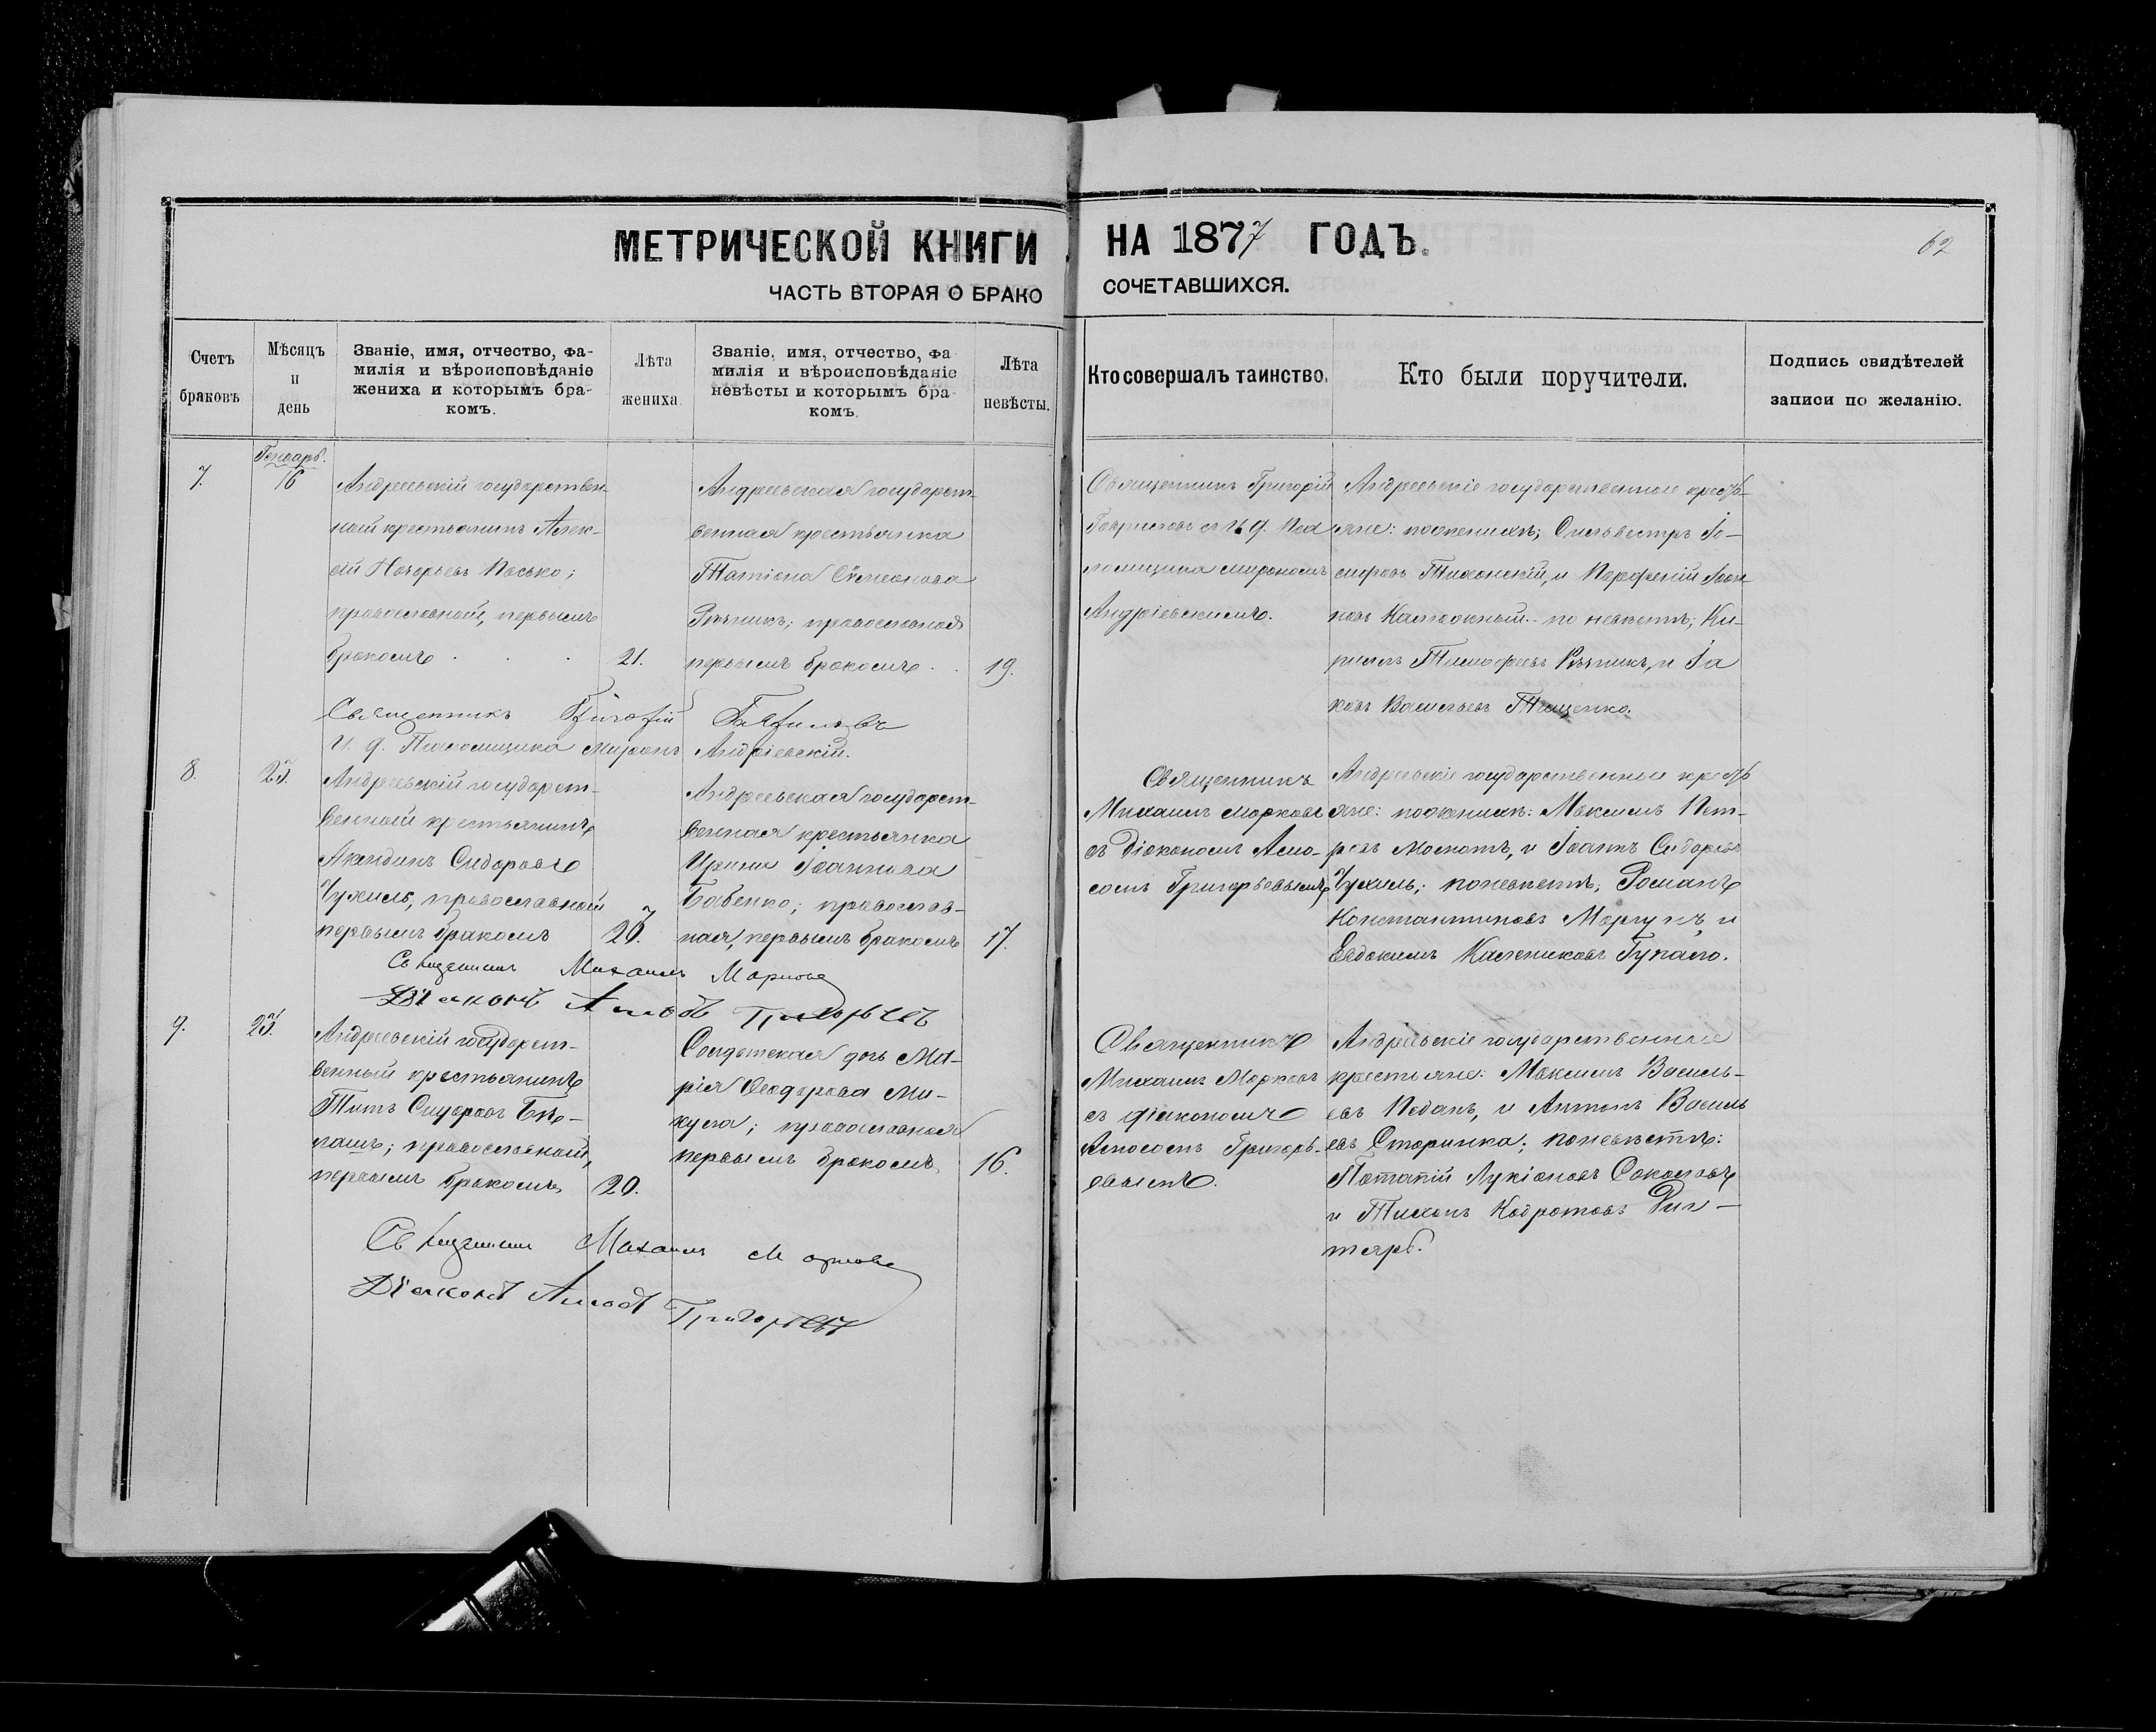 МЕТРИЧЕСКОЙ КНИГИ НА 1877 ГОДЪ.
62
ЧАСТЬ ВТОРАЯ О БРАКО СОЧЕТАВШИХСЯ.
Счетъ браковъ
Мѣсяцъ и день
Званіе, имя, отчество, фа-
милія и вѣроисповѣданіе
жениха и которымъ бра-
комъ.
Лѣта жениха
Званіе, имя, отчество, фа
милія и вѣроисповѣданіе
невѣсты и которымъ бра-
комъ.
Лѣта невѣсты.
Кто совершалъ таинство.
Кто были поручители.
Подпись свидѣтелей
записи по желанію.
7.
Генварь.
16
Андреевскій государствен-
ный крестьянинъ Алек-
сѣй Посько;
православный, первымъ
бракомъ . . .
21.
Андреевская государст-
венная крестьянка
Татіана Симеонова
Рѣзникъ; православная
первымъ бракомъ . .
19.
Священникъ Григорій
Гавриловъ съ И. д. Пса
ломщика Мирономъ
Андріевскимъ.
Андреевскіе государственные кресть-
яне: по женихѣ; Сильвестръ Іо-
сифовъ Тихонскій, и Парфеній Іоан
новъ по невѣстѣ; Ки-
риллъ Тимофеевъ и Іа
ковъ Васильевъ Тищенко.
Священникъ Григорій Гавриловъ
И. д. Псаломщика Миронъ Андріевскій.
8.
23.
Андреевскій государст-
венный крестьянинъ
Акиндинъ Сидоровъ
Чухиль, православный
первымъ бракомъ
20.
Андреевская государст-
венная крестьянка
Ирина Іоаннова
Бабенко; православ-
ная, первымъ бракомъ
17.
Священникъ
Михаилъ Марковъ
съ діакономъ Амо-
сомъ Григорьевымъ
Андреевскіе государственные кресть
яне: по женихѣ: Максимъ Пет-
ровъ и Іоаннъ Сидоровъ
Чухиль; по невѣстѣ; Романъ
Константиновъ Моргунъ, и
Евдокимъ Калениковъ Гупало.
Священникъ Михаилъ Марковъ
Діаконъ Амосъ Григорьевъ
9.
23.
Андреевскій государст-
венный крестьянинъ
Титъ Сидоровъ Бѣ-
лашъ; православный,
первымъ бракомъ
20.
Солдатская дочь Ма-
рія Ѳеодорова Ми-
кула; православная
первымъ бракомъ
16.
Священникъ
Михаилъ Марковъ
съ діакономъ
Амосомъ Григорь-
евымъ.
Андреевскіе государственные
крестьяне: Максимъ Василь-
евъ Педанъ, и Антонъ Василь
евъ Сторинка; по невѣстѣ:
Потапій Лукіановъ Соколовъ
и Тихонъ Кодратовъ Дих-
тярь.
Священникъ Михаилъ Марковъ
Діаконъ Амосъ Григорьевъ